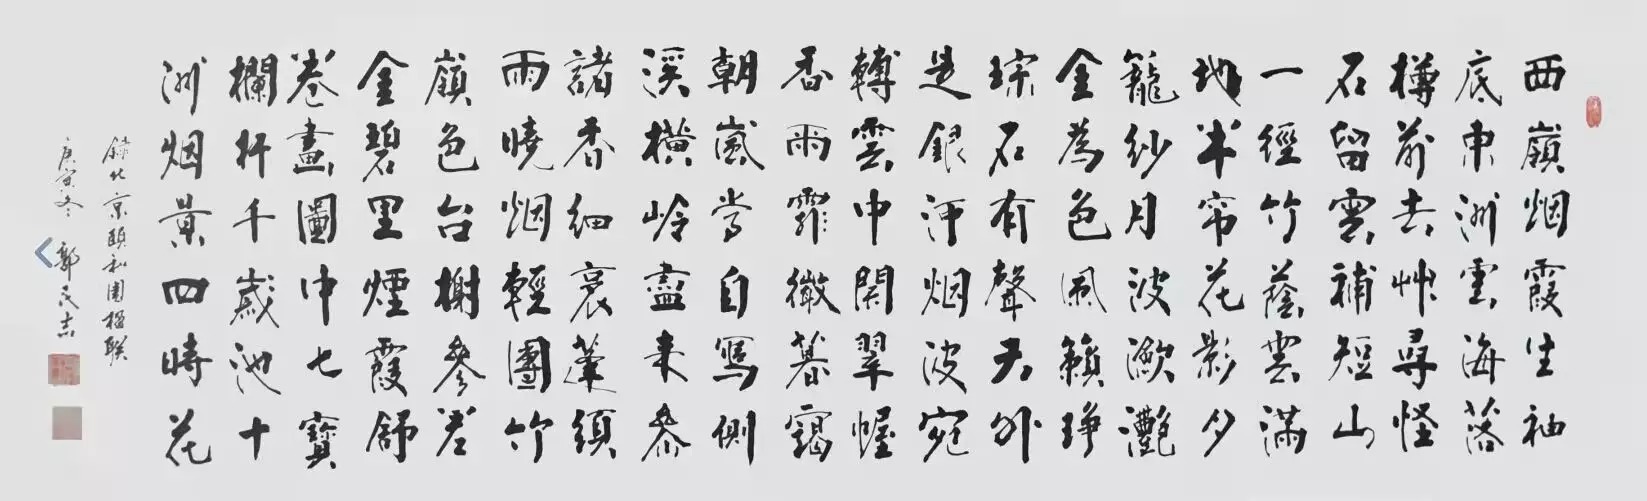 西嶺烟霞生袖
底東洲雲海落
樽前去艸尋怪
石留雲補短山
一徑竹蔭雲滿
地半帘花影夕
籠紗月波瀲灔
金為色風籟琤
琮石有聲天外
是銀河烟波宛
轉雲中開翠幄
香雨霏微暮靄
朝嵐常自寫側
溪橫岭盡來參
諸香細裛蓮須
雨曉烟輕團竹
嶺色台榭參差
金碧里煙霞舒
卷畫圖中七寶
欄杆千歲池十
洲烟景四時花
錄北京頤和園楹联
庚寅冬 郭民志